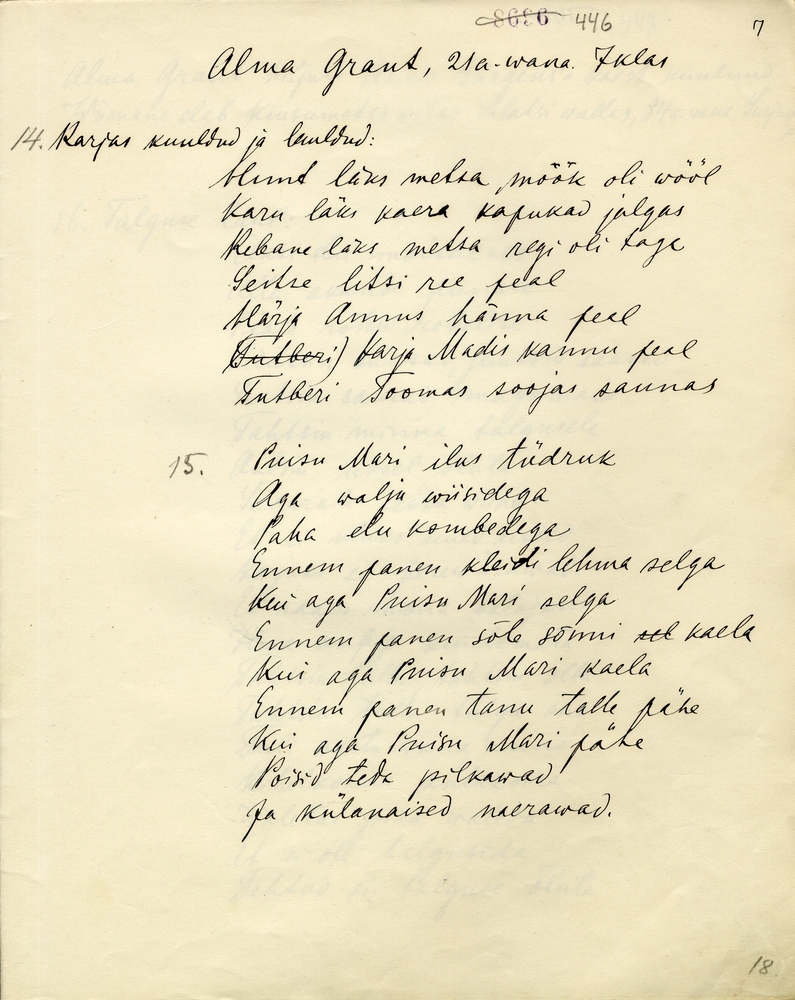 8696 446
7
Alma Grant, 21 a. wana. 7 klas
14. Karjas kuuldud ja lauldud:
Hunt läks metsa, mõõk oli wööl
Karu läks kaera kapukad jalgas
Rebane läks metsa regi oli taga
Seitse litsi ree peal
Härja Annus hänna peal
(Tutberi) Karja Madis kannu peal
Tutberi Toomas soojas saunas
15. Puisu Mari ilus tüdruk
Aga walju wiisidega
Paha elu kombedega
Ennem panen kleidi lehma selga
Kui aga Puisu Mari selga
Ennem panen sõle sõnni sel kaela
Kui aga Puisu Mari kaela
Ennem panen tanu talle pähe
Kui aga Puisu Mari pähe
Poisid teda pilkawad
Ja külanaised naerawad.
18